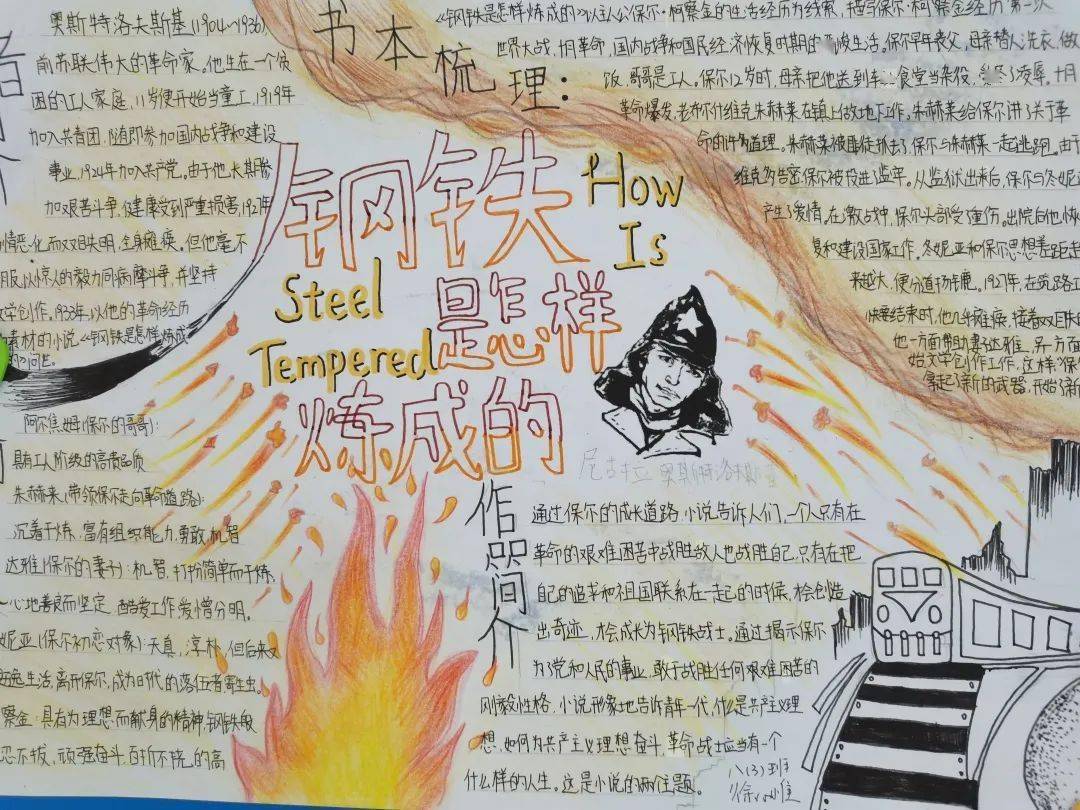 奥斯特洛夫斯基(1904~1936),
前苏联伟大的革命家。他生在一个贫
困的工人家庭,11岁便开始当童工,1919年
加入共青团,随即参加国内战争和建设
事业,1924年加入共产党。由于他长期参
加艰苦斗争,健康受到严重损害,1927年
情恶化而双目失明,全身瘫痪,但他毫不
服,以惊人的毅力同病魔斗争,并坚持
文学创作。1933年,以他的革命经历
素材的小说《钢铁是怎样炼成
问世。
书本梳理:
《钢铁是怎样炼成的》以主人公保尔·柯察金的生活经历为线索,描写保尔·柯察金经历第一次
世界大战,十月革命,国内战争和国民经济恢复时期的生活。保尔早年丧父,母亲替人洗衣,做
饭,哥哥是工人。保尔12岁时,母亲把他送到车站食堂当杂役,凌辱,十月
革命爆发,老布什维克朱赫莱在镇上做地下工作。朱赫莱给保尔讲了关于革
命的许多道理。朱赫莱被匪徒抓去了,保尔与朱赫莱一起逃跑。由于
维克多告密保尔被投进监牢。从监狱出来后,保尔与冬妮亚
产生了爱情,在激战中,保尔头部受重伤。出院后他恢
复和建设国家工作。冬妮亚和保尔思想差距起
来越大,便分道扬镳。1927年,在筑路工
快要结束时,他几乎瘫痪,接着双目失
他一方面帮助妻达雅,另一方面
始文学创作工作,这样,保
拿起了新的武器,开始了新
钢铁
How
Is
Steel
是怎样
Tempered
炼成的
尼古拉 奥斯特洛夫斯基
阿尔焦姆(保尔的哥哥):
具有工人阶级的高贵品质
朱赫莱(带领保尔走向革命道路):
沉着干炼,富有组织能力,勇敢,机智
达雅(保尔的妻子):机智,打扮简单而干炼,
心地善良而坚定,酷爱工作,爱憎分明。
妮亚(保尔初恋对象):天真,淳朴,但后来又
逸生活,离开保尔,成为时代的落伍者寄生虫。
察金:具有为理想而献身的精神,钢铁般
忍不拔,顽强奋斗,百折不挠,的高
作品简介
通过保尔的成长道路,小说告诉人们,一个人只有在
革命的艰难困苦中战胜敌人也战胜自己,只有在把
自己的追求和祖国联系在一起的时候,才会创造
出奇迹,才会成长为钢铁战士。通过揭示保尔
为了党和人民的事业,敢于战胜任何艰难困苦的
刚毅性格,小说形象地告诉青年一代,什么是共产主义理
想,如何为共产主义理想奋斗,革命战士应当有一个
什么样的人生。这是小说的两个主题。
八(3)班
徐